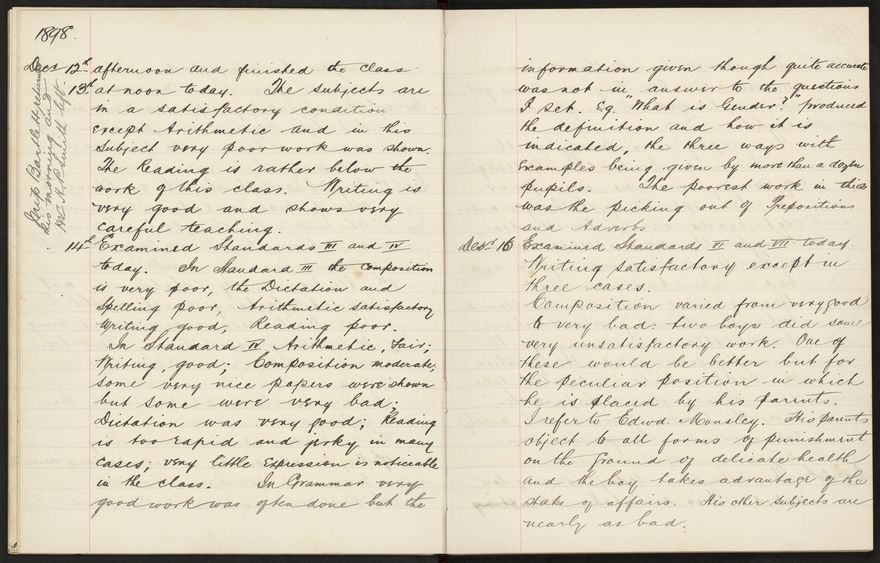 1898.
Decr 12th afternoon and finished the class
13th at noon today. The subjects are
in a satisfactory condition
except Arithmetic and in this
subject very poor work was shown.
The Reading is rather below the
work of this class. Writing is
very good and shows very
careful teaching.
Miss Bartlett returned
this morning and
left.
14th Examined Standards III and IV
today. In Standard III the composition
is very poor, the Dictation and
Spelling poor, Arithmetic satisfactory
Writing good, Reading poor.
In Standard IV Arithmetic, Fair;
Writing, good; Composition moderate;
some very nice papers were shown
but some were very bad;
Dictation was very good; Reading
is too rapid and jerky in many
cases; very little expression is noticeable
in the class. In Grammar very
good work was often done but the
information given though quite accurate
was not in answer to the questions
I set. Eg. "What is Gender?" produced
the definition and how it is
indicated, the three ways with
examples being given by more than a dozen
pupils. The poorest work in this
was the picking out of Prepositions
and Adverbs.
Decr 15 Examined Standards VI and VII today
Writing satisfactory except in
three cases.
Composition varied from very good
to very bad: two boys did some
very unsatisfactory work. One of
these would be better but for
the peculiar position in which
he is placed by his parents.
I refer to Edwd. Mousley. His parents
object to all forms of punishment
on the ground of delicate health
and the boy takes advantage of the
state of affairs. His other subjects are
nearly as bad.